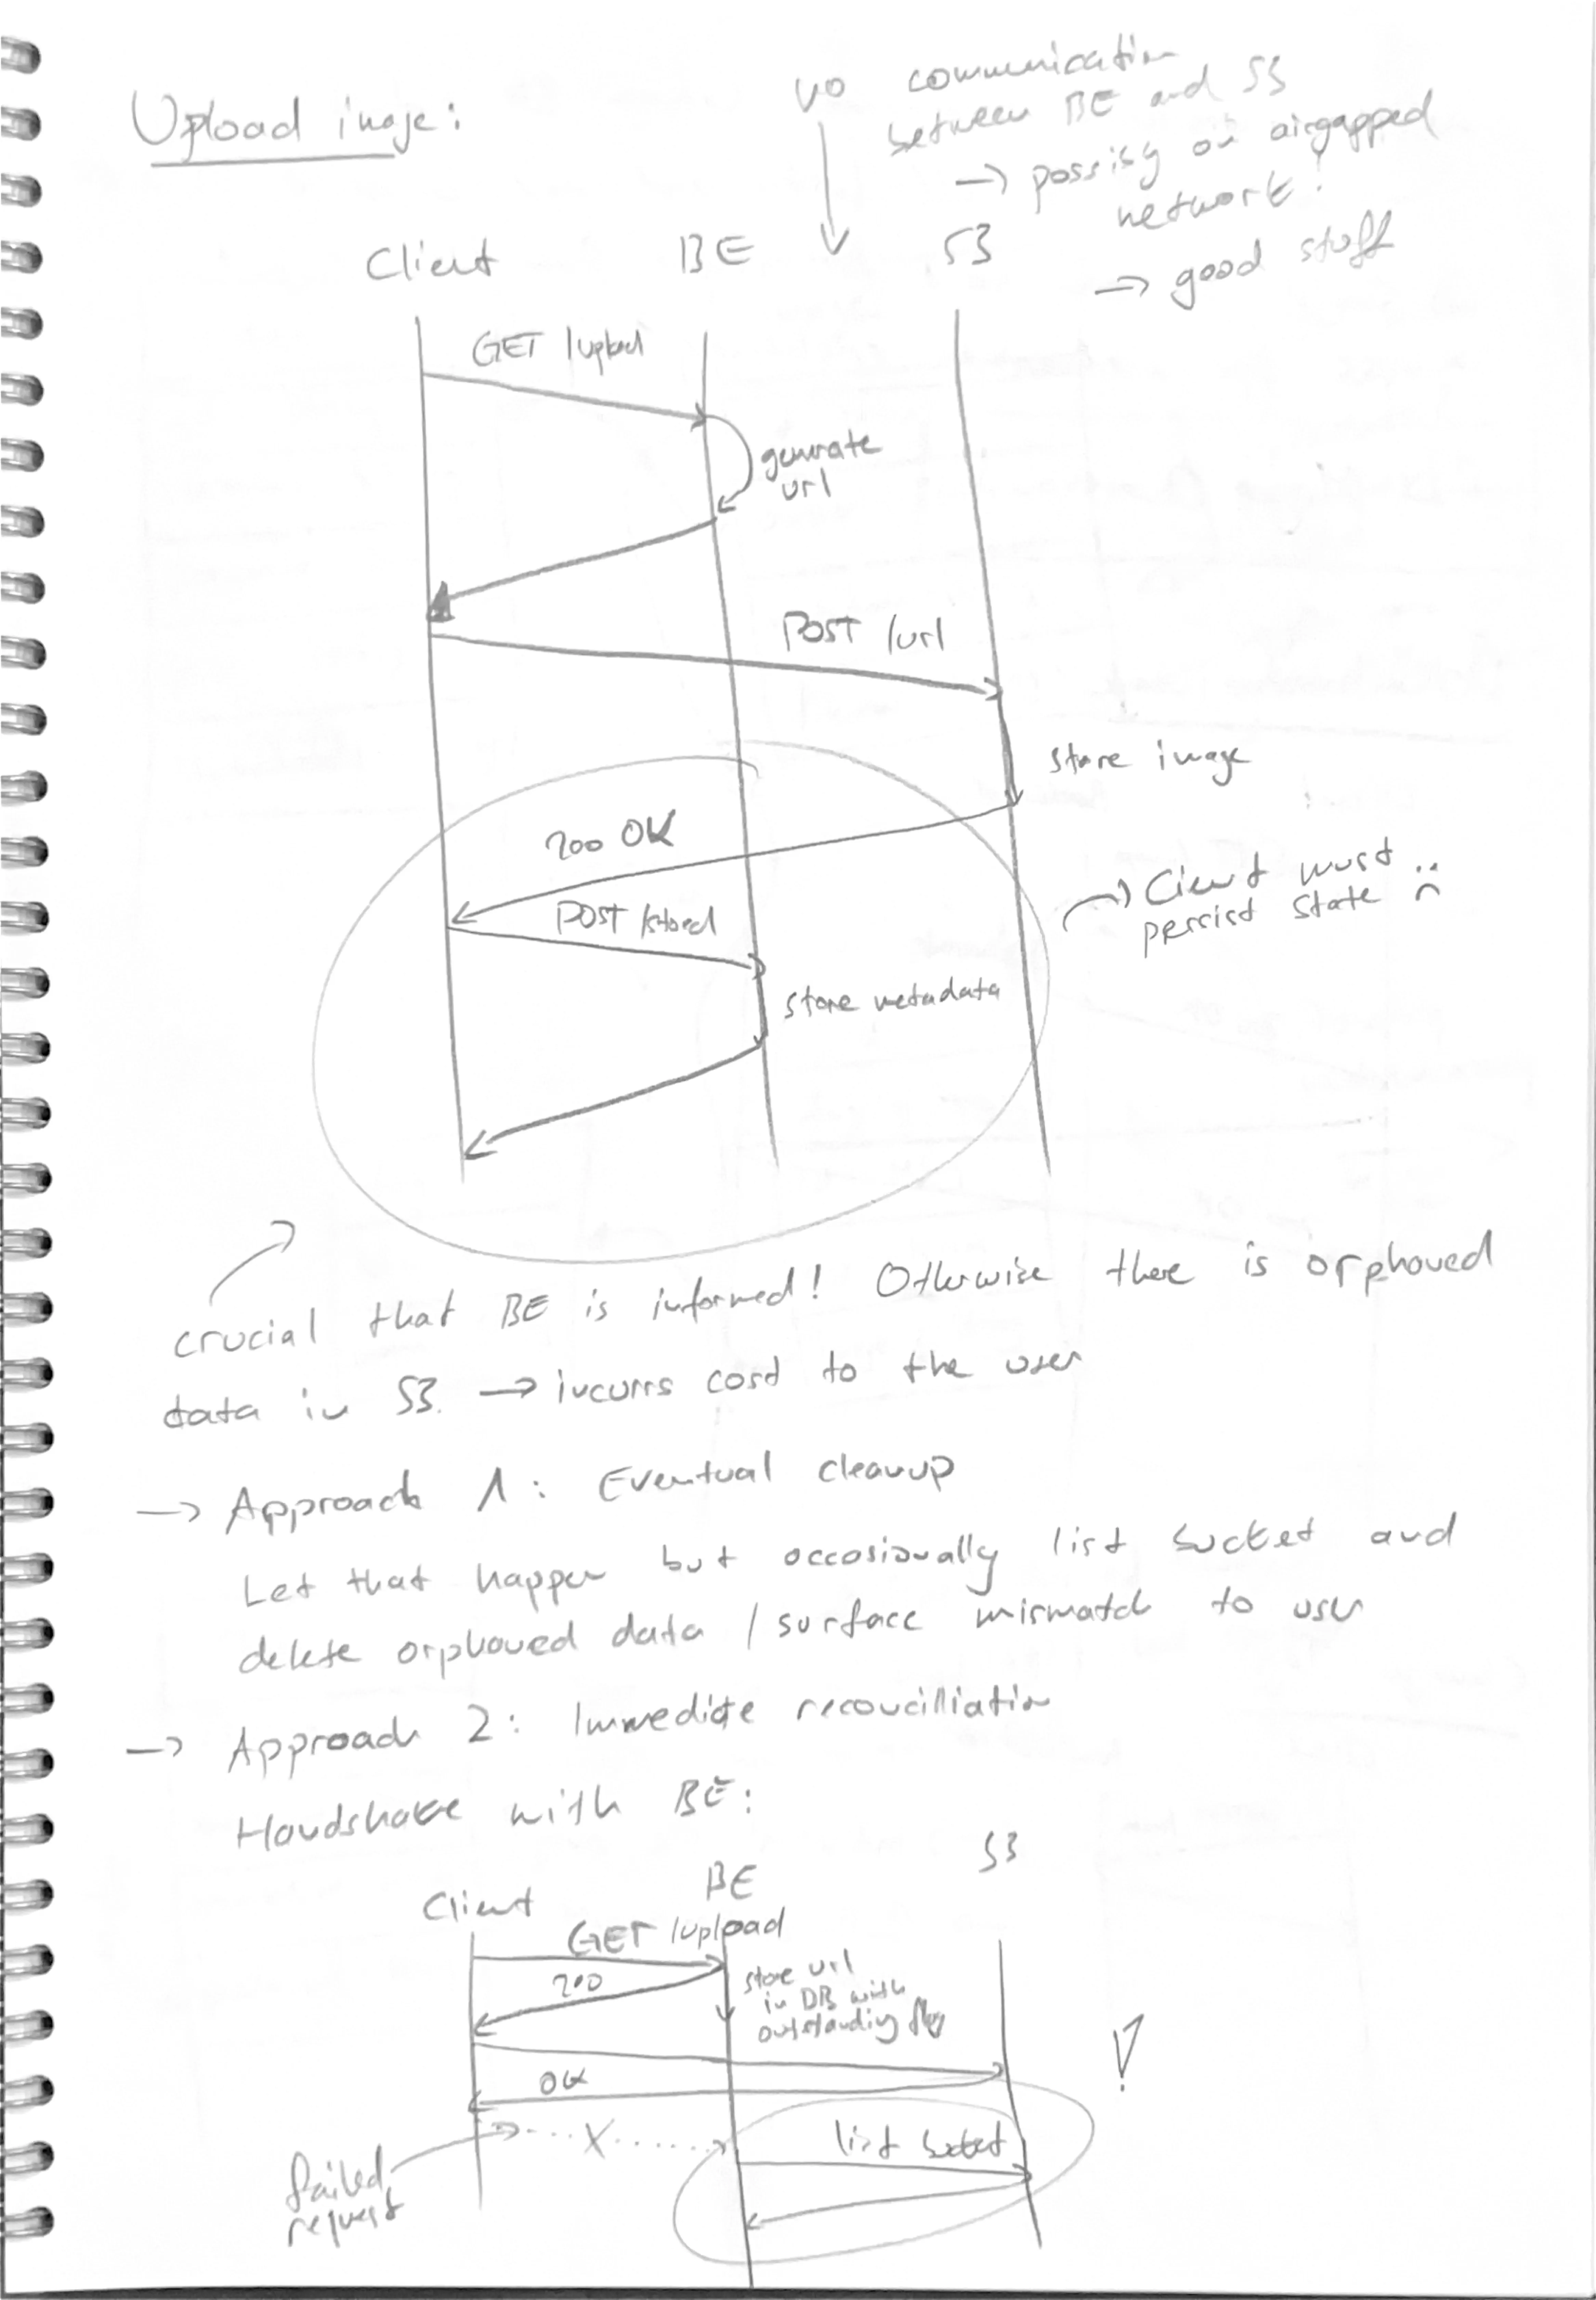 Upload image:
no communication
between BE and S3
→ possibly on airgapped
network!
→ good stuff
Client BE S3
GET /upload
generate
url
POST /url
store image
200 OK
→ Client must
persist state :(
POST /stored
store metadata
crucial that BE is informed! Otherwise there is orphoned
data in S3. → incurrs cost to the user
→ Approach 1: Eventual cleanup
Let that happen but occasionally list bucket and
delete orphoned data / surface mismatch to user
→ Approach 2: Immediate reconcilliation
Handshake with BE:
Client BE S3
GET /upload
200
store url
in DB with
outstanding flag
OK
!
X
list bucket
failed
request